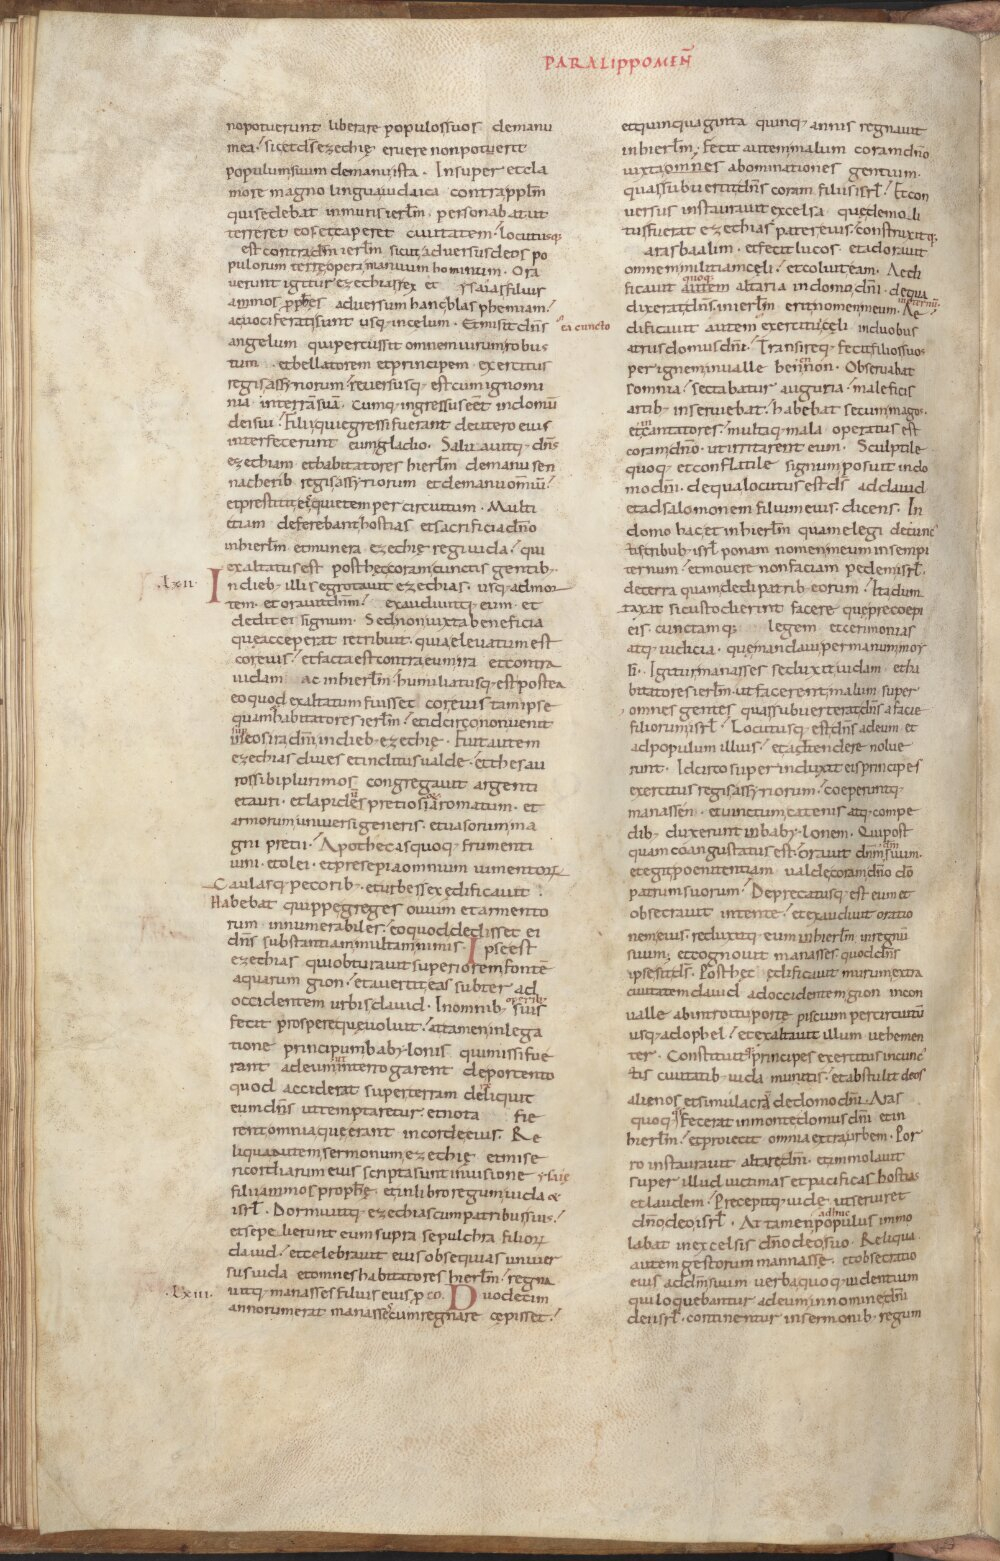 PARALIPPOMEN̄
nopotuerunt liberare populos suos demanu
mea; sic et d̄s ezechię eruere non potuerit
populum suum demanu ista. Insuper et cla
more magno lingua iudaica contra ppl̄m
qui sedebat in muris ierl̄m. personabat ut
terreret eos et caperet ciuitatem; locutusq;
est contra dm̄ ierl̄m sicut aduersus deos po
pulorum terrę opera manuum hominum. Ora
uerunt igitur ezechias rex et ysaias filius
ammos pph̄es aduersum hanc blasphemiam;
ac uociferati sunt usq; in celum. Et misit dn̄s
angelum qui percussit omnem uirum robus
tum et bellatorem et principem exercitus
regis assyriorum; reuersusq; est cum ignomi
nia interrā suā. Cumq; ingressus eēt indomū
dei sui; filii qui egressi fuerant deutero eius
interfecerunt eum gladio. Saluauitq; dn̄s
ezechiam et habitatores hierl̄m demanu sen
nacherib regis assyriorum et demanu omniū;
et prestitit eis quietem per circuitum. Multi
etiam deferebant hostias et sacrificia dn̄o
in hierl̄m et munera ezechię regi iuda; qui
exaltatus est post hęc coram cunctis gentib;
.Lxii.
In dieb; illis egrotauit ezechias. usq; ad mor
tem. et orauit dn̄m; exaudiuitq; eum. et
dedit ei signum. Sed non iuxta beneficia
quę acceperat retribuit. quia eleuatum est
cor eius; et facta est contra eum ira et contra
iudam ac in hierl̄m; humiliatusq; est postea
eo quod exaltatum fuisset cor eius tam ipse
quam habitatores ierl̄m; et idcirco non uenit
super eos ira dn̄i in dieb; ezechię. Fuit autem
ezechias diues et inclitus ualde; et thesau
ros sibi plurimos congregauit argenti
et auri. et lapides pretiosi aromatum. et
armorum uniuersi generis. et uasorum ma
gni pretii; Apothecas quoq; frumenti
uini. et olei. et presepia omnium iumentorum
Caulasq; pecorib;. et urbes sex ędificauit;
Habebat quippe greges ouium et armento
rum innumerabiles; eo quod dedisset ei
dn̄s substantiam multam nimis. Ipse est
ezechias qui obturauit superiorem fontē
aquarum gion; et auertit eas subter ad
occidentem urbis dauid. In omnib; operib; suis
fecit prospere quę uoluit; attamen in lega
tione principum babylonis qui missi fue
rant ad eum ut interrogarent deportento
quod acciderat super terram deliquit
eum dn̄s ut temptaretur; et nota fie
rent omnia quę erant in corde eius. Re
liqua autem sermonum ezechię et mise
ricordiarum eius scripta sunt in uisione ysaię
filii ammos prophę. et in libro regum iuda &
isrl̄. Dormiuitq; ezechias cum patribus suis;
et sepelierunt eum supra sepulchra filiorum
dauid; et celebrauit eius obsequias uniuer
sus iuda et omnes habitatores hierl̄m; regna
uitq; manasses filius eius p eo.
.Lxiii.
Duodecim
annorum erat manasse cum regnare cępisset;
et quinquaginta quinq; annis regnauit
in hierl̄m; Fecit autem malum coram dn̄o
iuxta omnes abominationes gentium
quas subuertit dn̄s coram filiis isrl̄; Et con
uersus instaurauit excelsa quę demoli
tus fuerat ezechias pater eius; construxitq;
aras baalim. et fecit lucos et adorauit
omnem militiam cęli; et coluit eam. Aedi
ficauit autem quoq; altaria in domo dn̄i. de qua
dixerat dn̄s. in ierl̄m erit nomen meum. Ae
dificauit autem exercitui cęli in duobus
atriis domus dn̄i. Transireq; fecit filios suos
per ignem in ualle bennon. Obseruabat
somnia; sectabatur auguria; maleficis
artib; inseruiebat; habebat secum magos.
et cantatores; multaq; mala operatus est
coram dn̄o. ut irritarent eum. Sculptile
quoq; et conflatile signum posuit in do
mo dn̄i. de qua locutus est d̄s ad dauid
et ad salomonem filium eius. dicens. In
domo hac et in hierl̄m quam elegi de cunc
tis tribub; isrl̄ ponam nomen meum in sempi
ternum; et mouere non faciam pedem isrl̄.
de terra quam dedi patrib; eorum; Ita dum
taxat si custodierint facere quę precoepi
eis. cunctamq; legem et cerimonias
atq; iudicia. quę mandaui per manum moy
si. Igitur manasses seduxit iudam et ha
bitatores ierl̄m. ut facerent malum super
omnes gentes quas subuerterat dn̄s a facie
filiorum isrl̄; Locutusq; est dn̄s ad eum et
ad populum illius; et adtendere nolue
runt. Idcirco superinduxit eis principes
exercitus regis assyriorum; coeperuntq;
manassen. et uinctum catenis atq; compe
dib; duxerunt in babylonem. Qui post
quam coangustatus est; orauit dn̄m dm̄ suum.
et egit poenitentiam ualde coram dn̄o dō
patrum suorum; Deprecatusq; est eum et
obsecrauit intente; et exaudiuit oratio
nem eius. reduxitq; eum in hierl̄m in regnū
suum; et cognouit manasses quod dn̄s
ipse sit d̄s. Post hec ędificauit murum extra
ciuitatem dauid ad occidentem gion in con
ualle ab introitu portę piscium per circuitū
usq; ad ophel; et exaltauit illum uehemen
ter. Constituitq; principes exercitus in cunc
tis ciuitatib; iuda munitis; et abstulit deos
alienos et simulacra de domo dn̄i. Aras
quoq; quas fecerat in monte domus dn̄i et in
hierl̄m; et proiecit omnia extra urbem. Por
ro instaurauit altare dn̄i. et immolauit
super illud uictimas et pacificas hostias
et laudem; Precepitq; iudę ut seruiret
dn̄o deo isrl̄. At tamen adhuc populus immo
labat in excelsis dn̄o deo suo. Reliqua
autem gestorum mannasse. et obsecratio
eius ad dm̄ suum uerba quoq; uidentium
qui loquebantur ad eum in nomine dn̄i
dei isrl̄. continentur in sermonib; regum